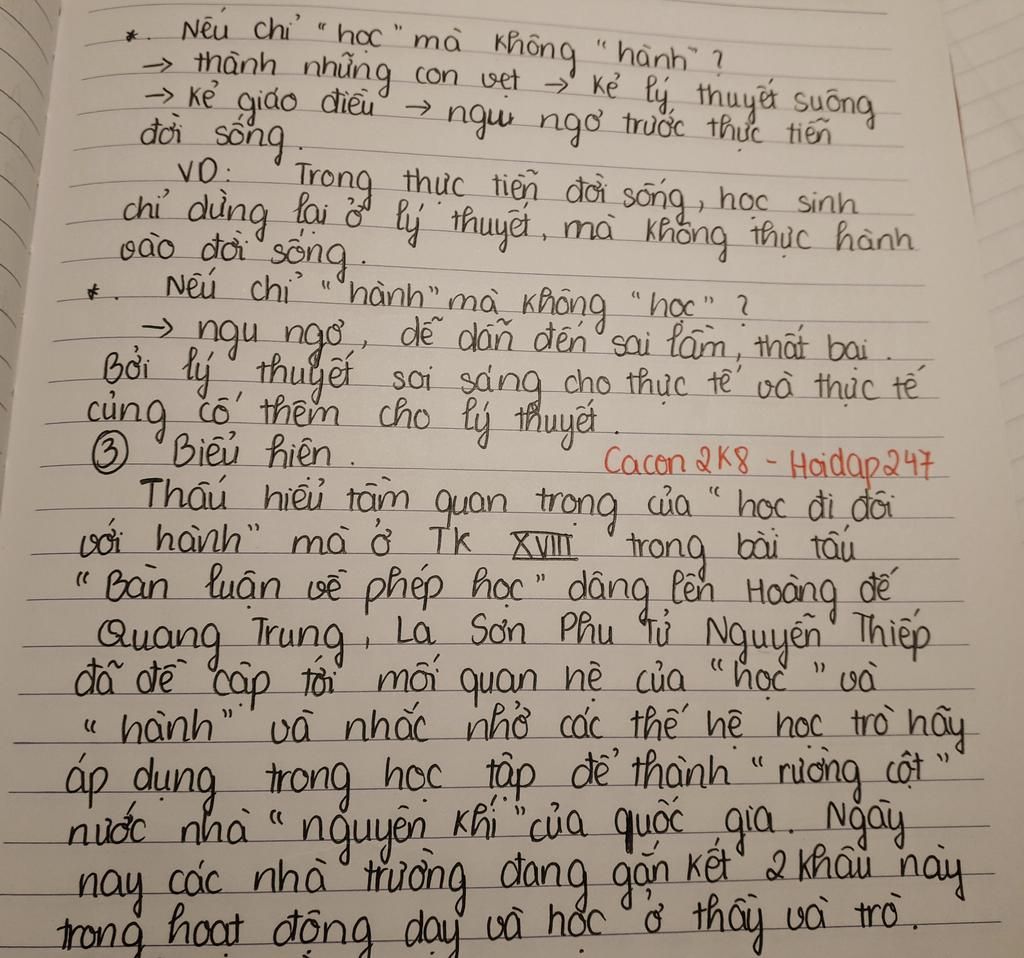 *. Nếu chỉ "học" mà không "hành"?
→ thành những con vẹt → kẻ lý thuyết suông
→ kẻ giáo điều → ngu ngơ trước thực tiễn
đời sống.
VD: Trong thực tiễn đời sống, học sinh
chỉ dừng lại ở lý thuyết, mà không thực hành
vào đời sống.
*. Nếu chỉ "hành" mà không "học"?
→ ngu ngơ, dễ dẫn đến sai lầm, thất bại.
Bởi lý thuyết soi sáng cho thực tế và thực tế
củng cố thêm cho lý thuyết.
③ Biểu hiện.
Cacon2K8 - Hoidap247
Thấu hiểu tầm quan trọng của "học đi đôi
với hành" mà ở TK XVIII trong bài tấu
"Bàn luận về phép học" dâng lên Hoàng đế
Quang Trung, La Sơn Phu Tử Nguyễn Thiếp
đã đề cập tới mối quan hệ của "học" và
"hành" và nhắc nhở các thế hệ học trò hãy
áp dụng trong học tập để thành "rường cột"
nước nhà "nguyên khí" của quốc gia. Ngày
nay các nhà trường đang gắn kết 2 khâu này
trong hoạt động dạy và học ở thầy và trò.